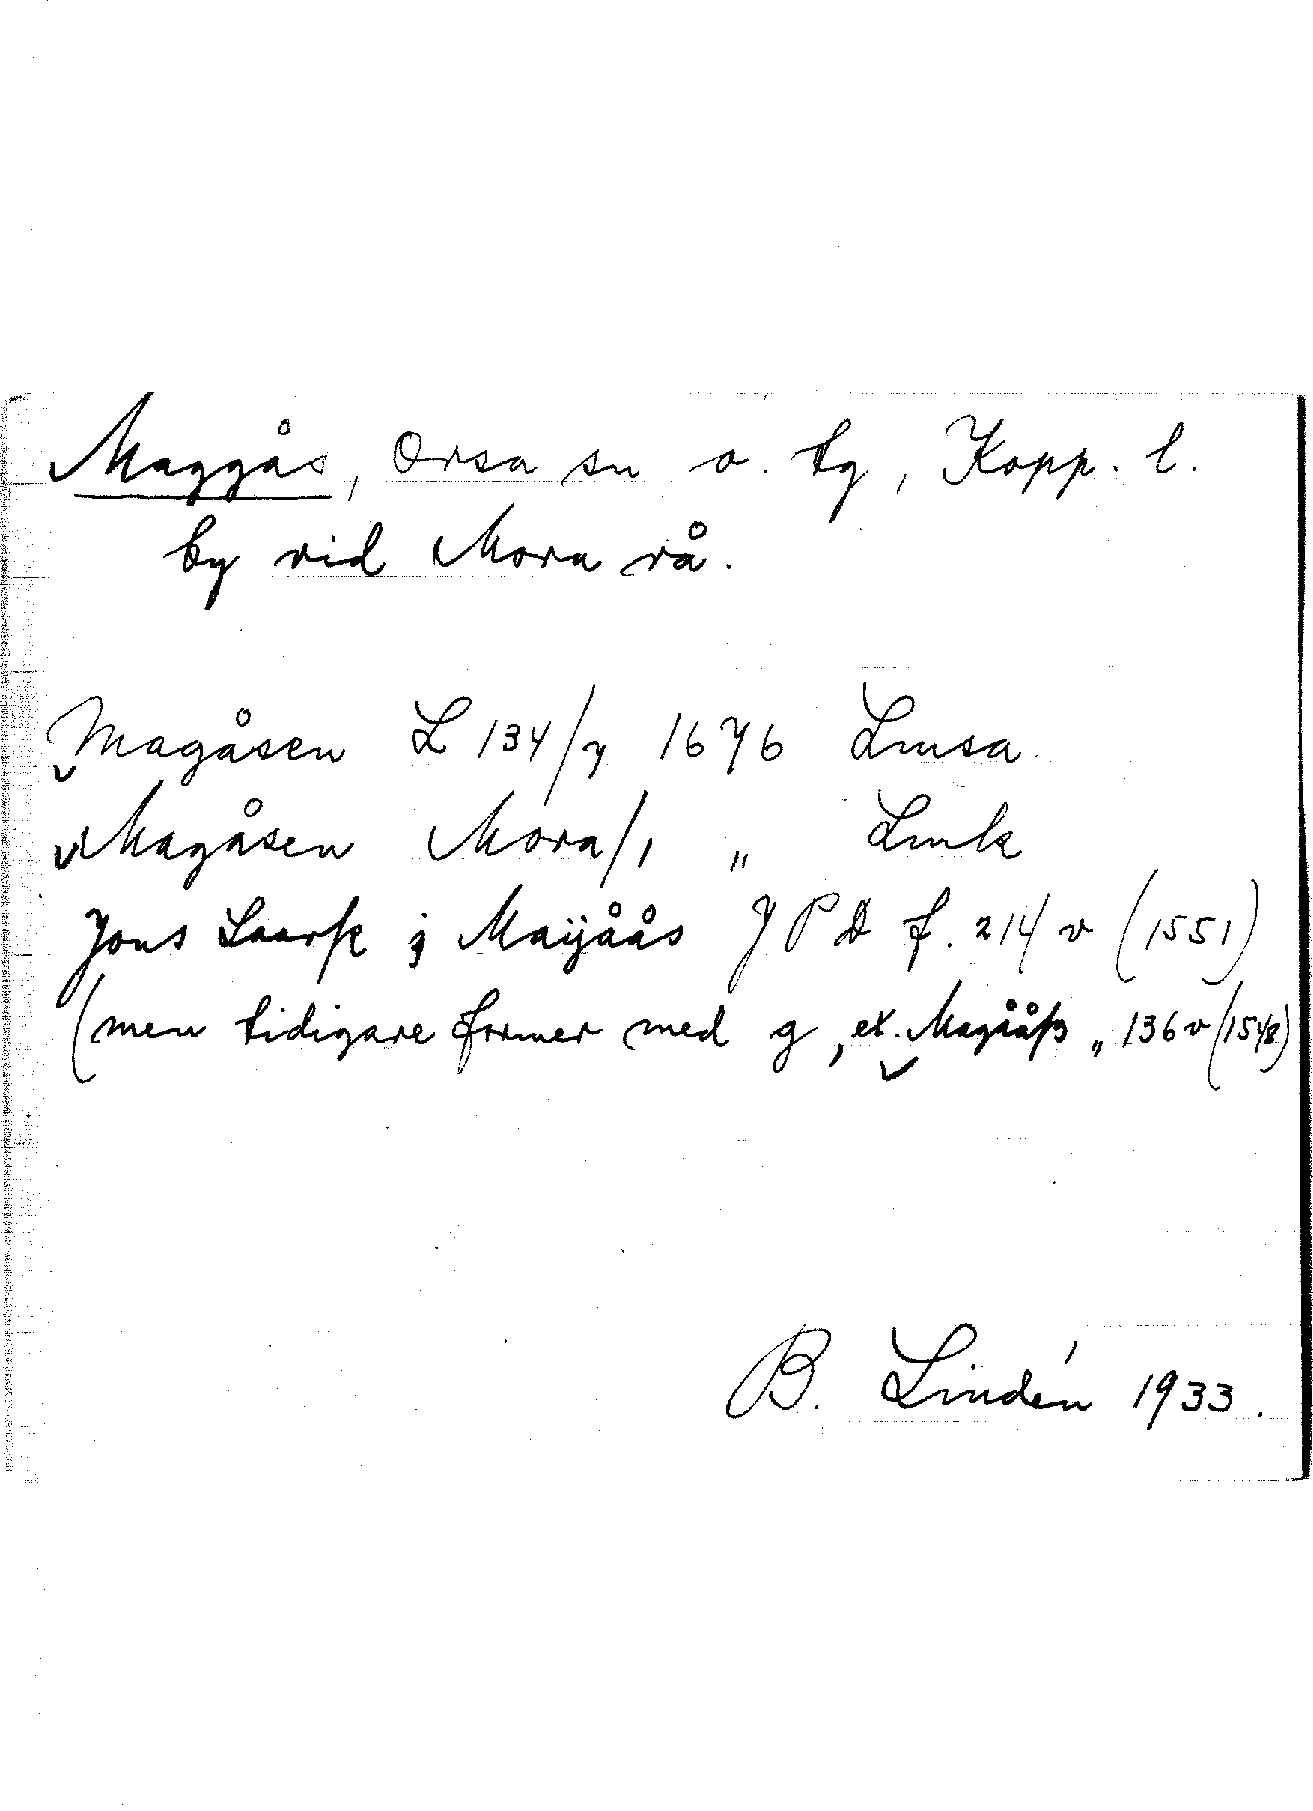 Maggås, Orsa sn o. tg, Kopp. l.
by vid Mora rå.
Magåsen L 134/7 1676 Lmsa
Magåsen Mora/1 " Lmk
Jons j Maijåås JPD f. 214 v (1551)
(men tidigare former med g, ex. Magååß " 136 v (1548)
B. Lindén 1933.